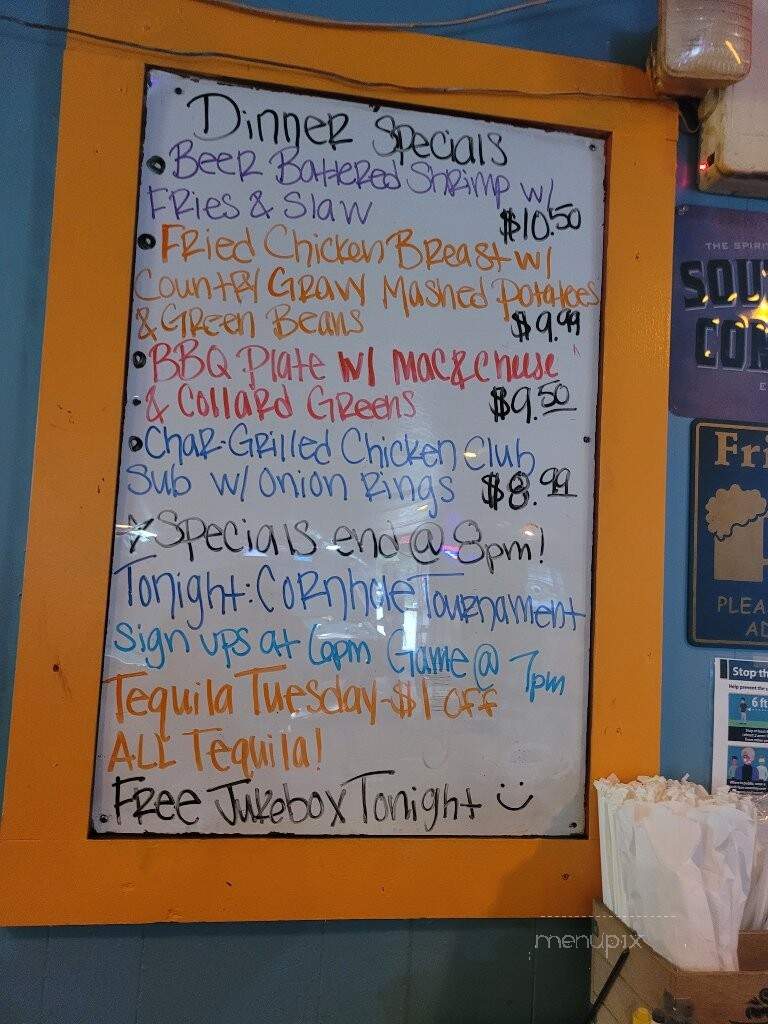 Dinner Specials
• Beer Battered Shrimp w/
Fries & Slaw $10.50
• Fried Chicken Breast w/
Country Gravy Mashed Potatoes
& Green Beans $9.99
• BBQ Plate w/ Mac & Cheese
• & Collard Greens $9.50
• Char-Grilled Chicken Club
Sub w/ Onion Rings $8.99
Specials end @ 8pm!
Tonight: Cornhole Tournament
Sign ups at 6pm Game @ 7pm
Tequila Tuesday - $1 off
ALL Tequila!
Free Jukebox Tonight
THE SPIRI
SOU
CO
E
Fri
PLEA
AD
Stop th
Help prevent the
6 ft
menupix